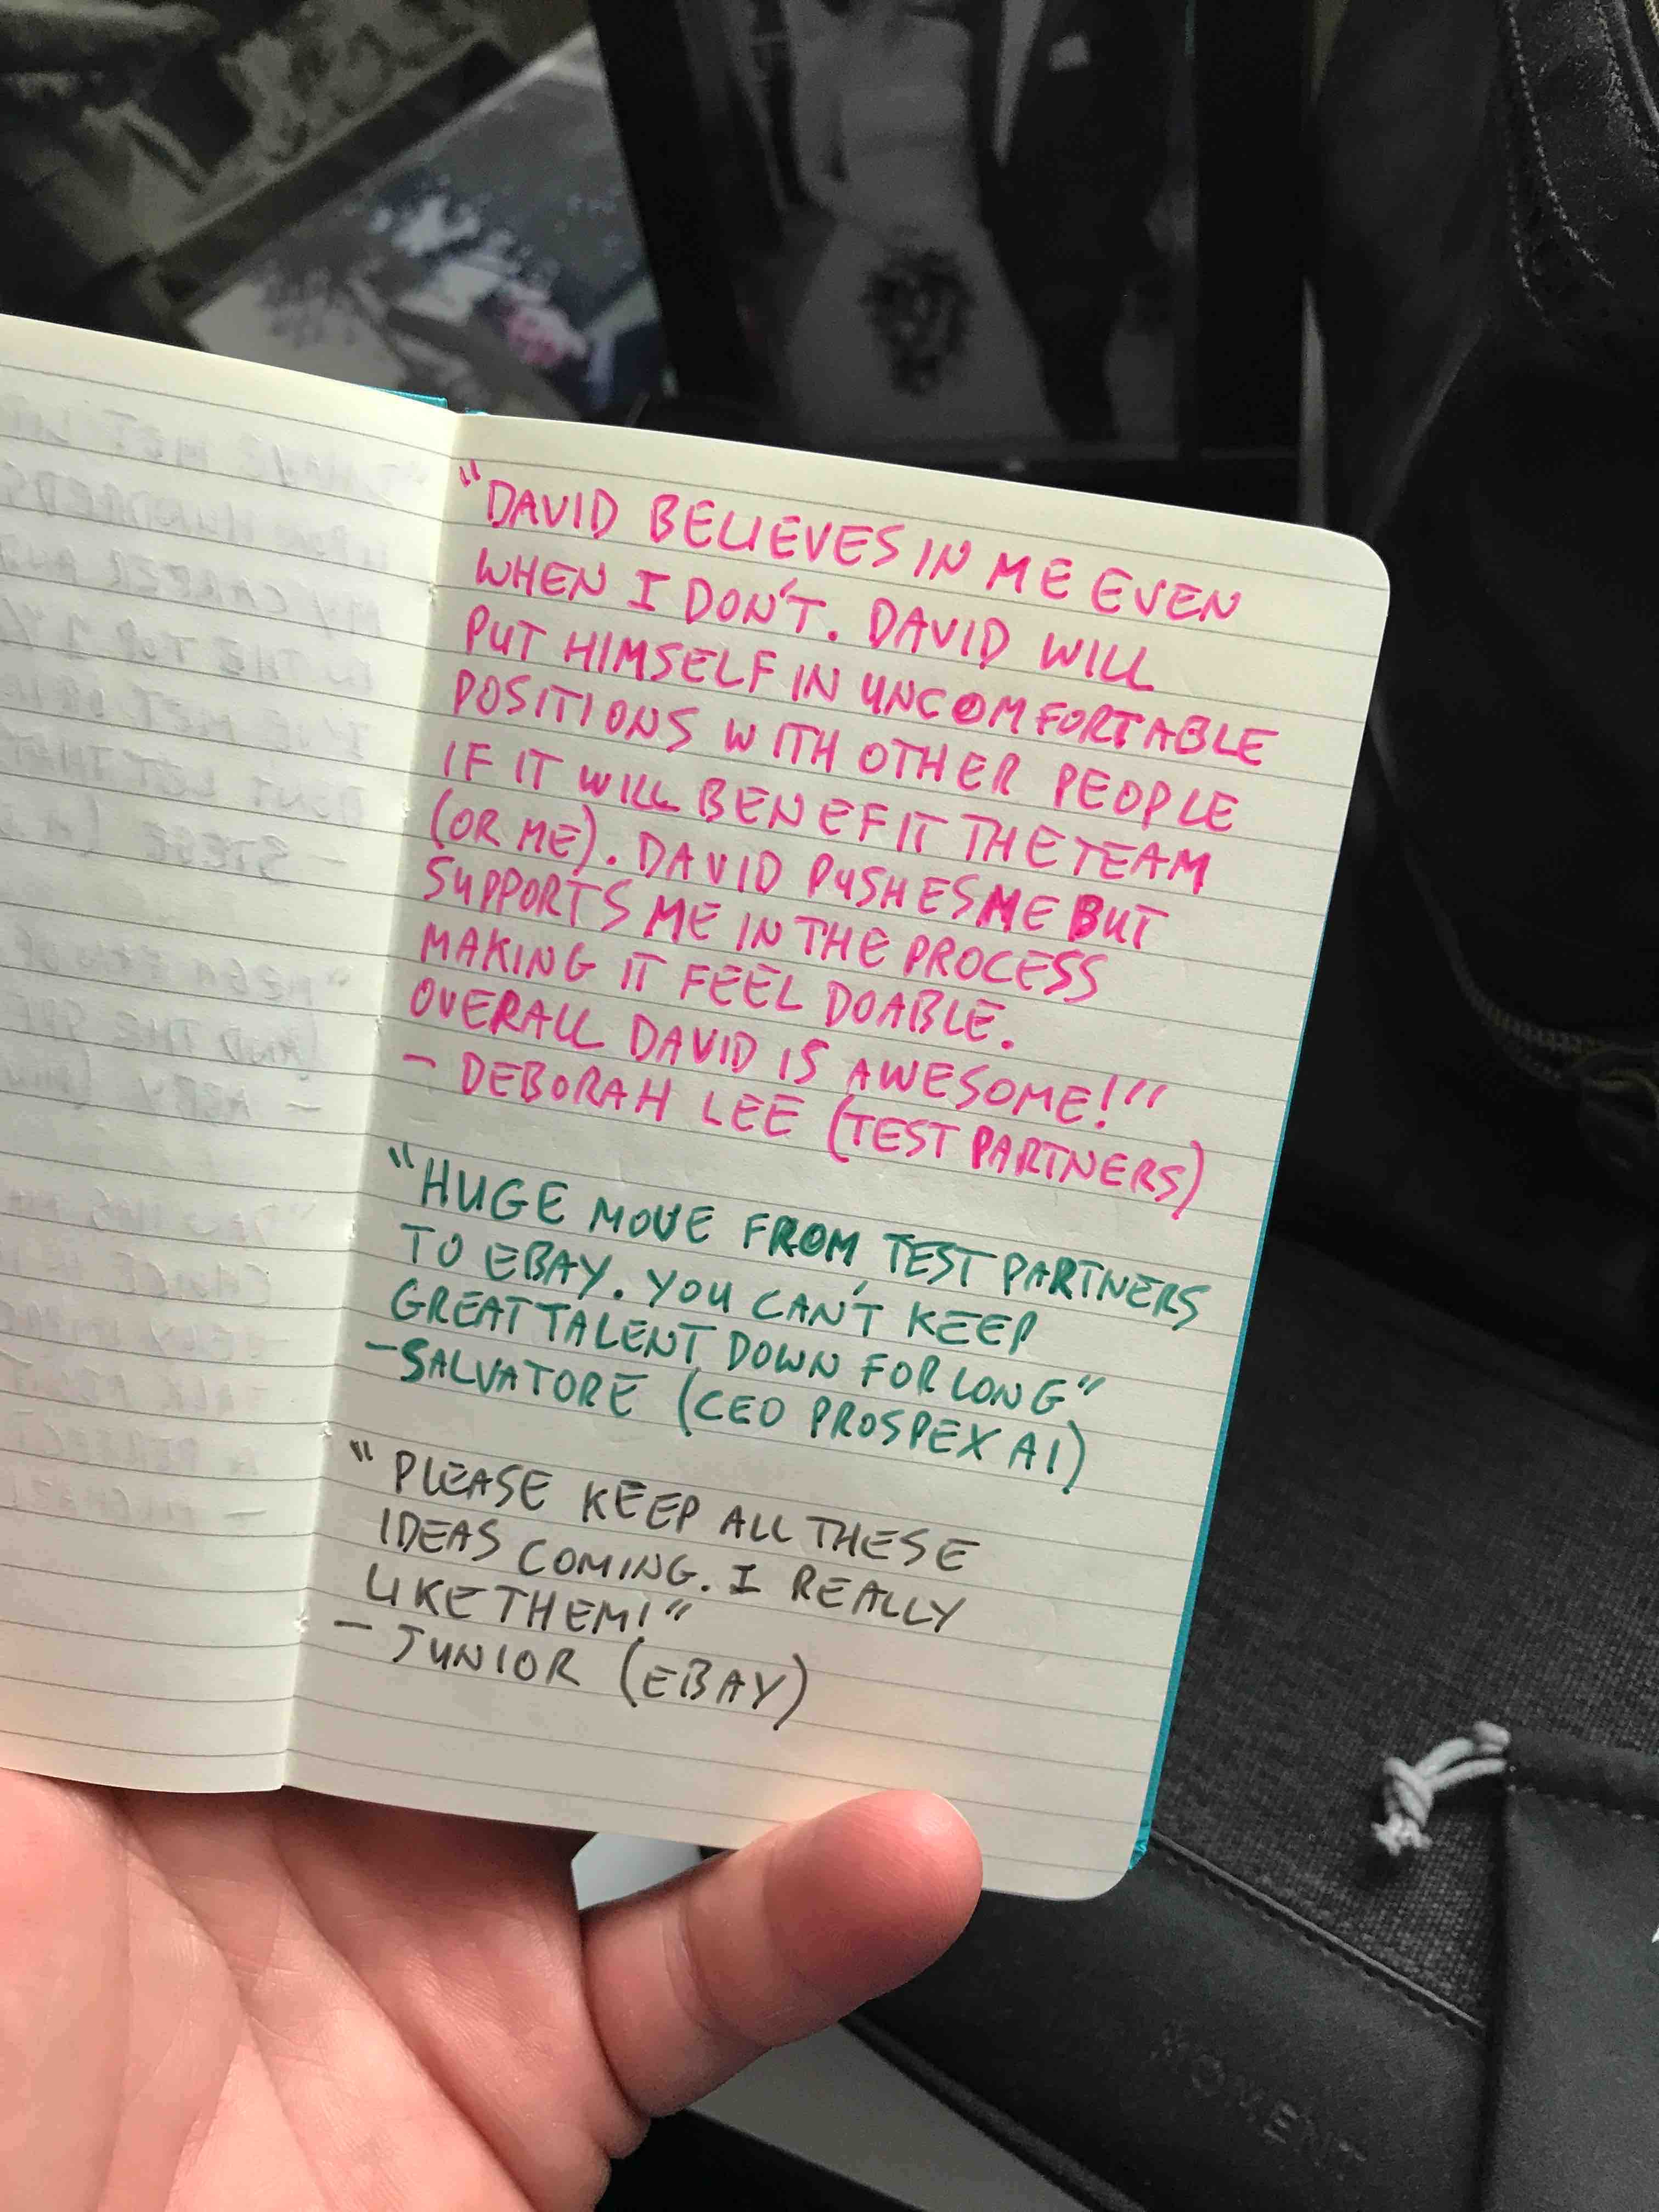 "DAVID BELIEVES IN ME EVEN
WHEN I DON'T. DAVID WILL
PUT HIMSELF IN UNCOMFORTABLE
POSITIONS WITH OTHER PEOPLE
IF IT WILL BENEFIT THE TEAM
(OR ME). DAVID PUSHES ME BUT
SUPPORTS ME IN THE PROCESS
MAKING IT FEEL DOABLE.
OVERALL DAVID IS AWESOME!"
- DEBORAH LEE (TEST PARTNERS)
"HUGE MOVE FROM TEST PARTNERS
TO EBAY. YOU CAN'T KEEP
GREAT TALENT DOWN FOR LONG"
- SALVATORE (CEO PROSPEX AI)
"PLEASE KEEP ALL THESE
IDEAS COMING. I REALLY
LIKE THEM!"
- JUNIOR (EBAY)
MOMENT